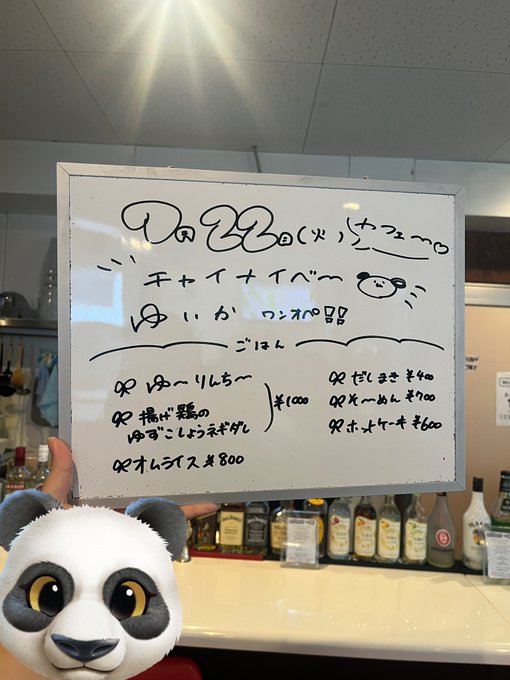 7月22日(火) カフェ〜
チャイナイベ〜
ゆいか ワンオペ!!
ごはん
ゆ〜りんち〜
揚げ鶏の
ゆずこしょうネギダレ
¥1000
オムライス ¥800
だしまき ¥400
そ〜めん ¥700
ホットケーキ ¥600